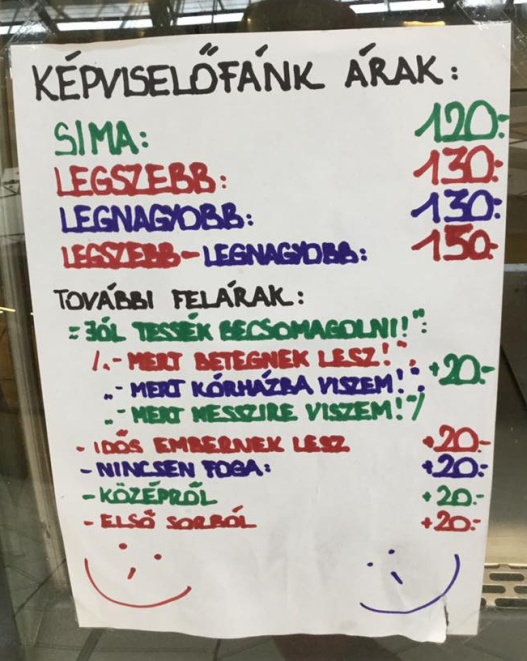 KÉPVISELŐFÁNK ÁRAK:
SIMA: 120.-
LEGSZEBB: 130.-
LEGNAGYOBB: 130.-
LEGSZEBB-LEGNAGYOBB: 150.-
TOVÁBBI FELÁRAK:
-"JÓL TESSÉK BECSOMAGOLNI!":
/.- MERT BETEGNEK LESZ!".
„- MERT KÓRHÁZBA VISZEM!". +20.-
„- MERT MESSZIRE VISZEM!"/
- IDŐS EMBERNEK LESZ +20.-
- NINCSEN FOGA: +20.-
- KÖZÉPRŐL +20.-
- ELSŐ SORBÓL +20.-